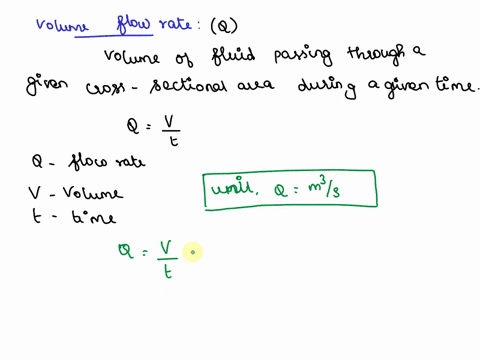 Volume flow rate: (Q)
Volume of fluid passing through a
given cross-sectional area during a given time.
Q = V/t
Q - flow rate
V - Volume
t - time
unit, Q = m³/s
Q = V/t